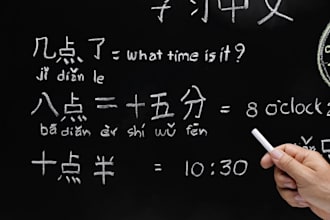 学习中文
几点了 = what time is it?
jǐ diǎn le
八点二十五分 = 8 o'clock 2
bā diǎn èr shí wǔ fēn
十点半 = 10:30